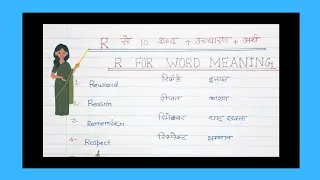 R से 10 शब्द + उच्चारण + अर्थ
R FOR WORD MEANING
1- Reward रिवॉर्ड इनाम
2- Reason रीजन कारण
3- Remember रिमेम्बर याद रखना
4- Respect रिस्पेक्ट सम्मान